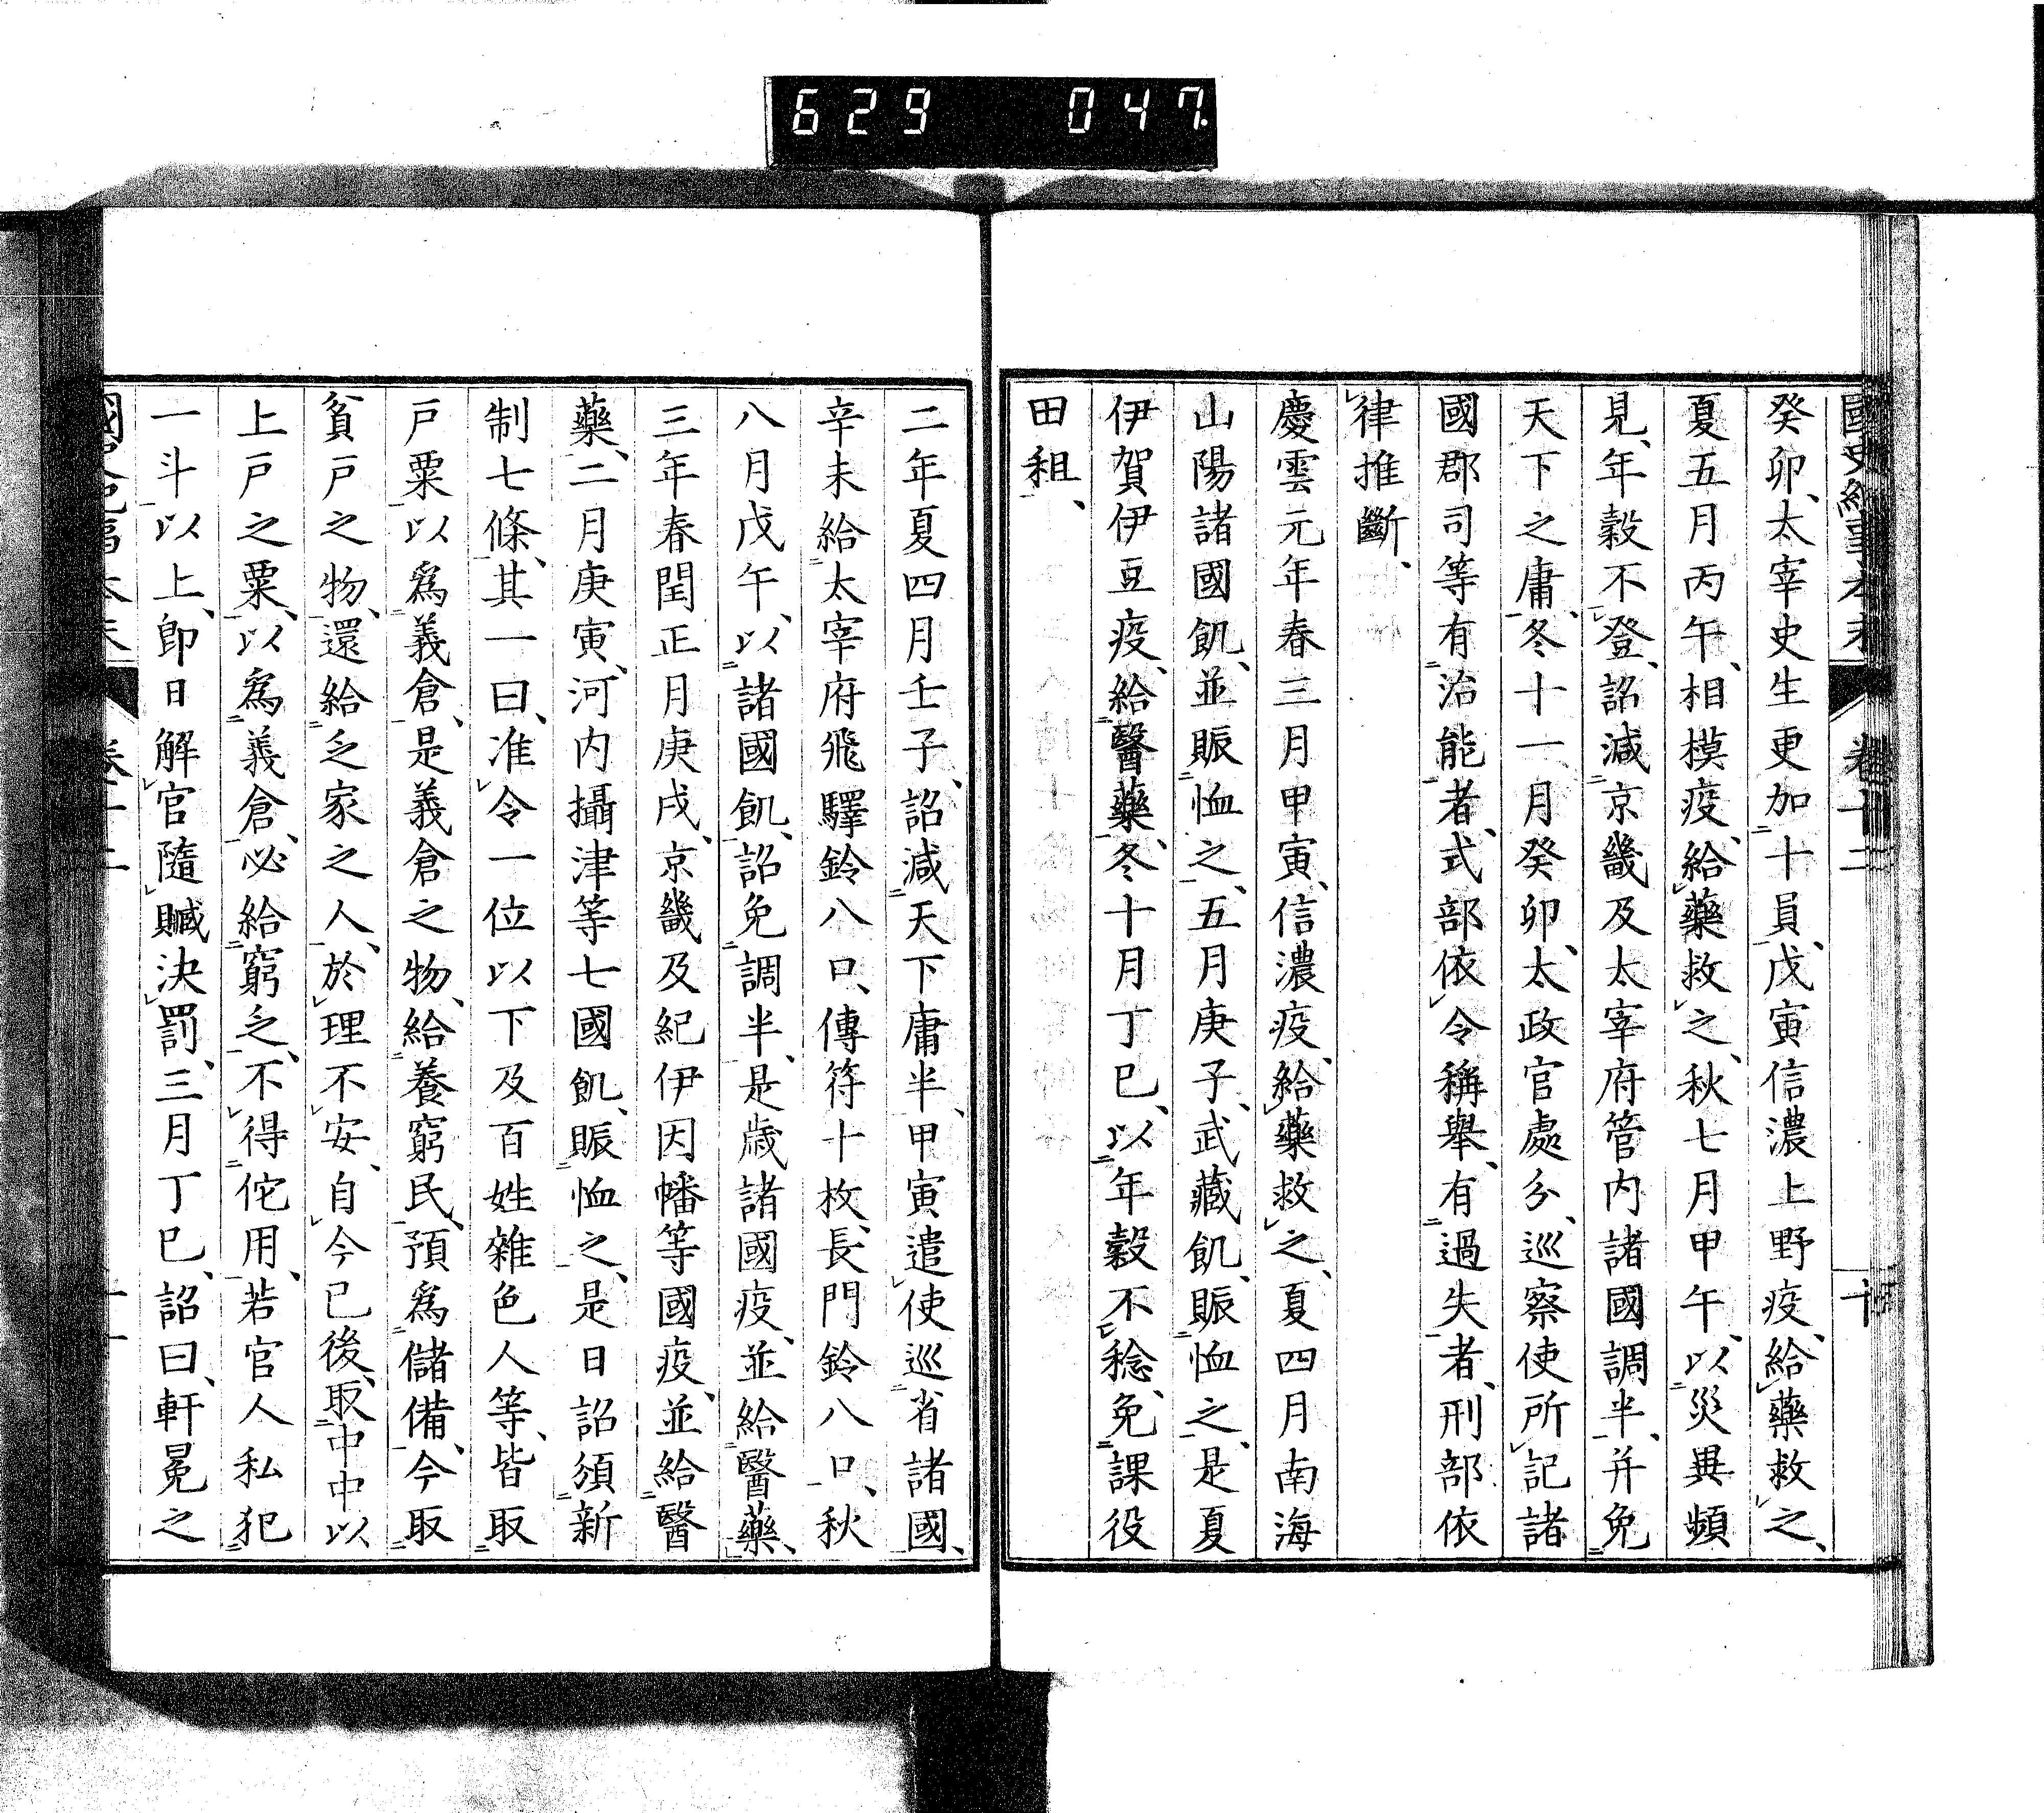 629 047
國史紀事本末 卷十二 十
癸卯、太宰史生更加十員、戊寅信濃上野疫、給藥救之、
夏五月丙午、相模疫、給藥救之、秋七月甲午、以災異頻
見、年穀不登、詔減京畿及太宰府管内諸國調半、并免
天下之庸、冬十一月癸卯、太政官處分、巡察使所記諸
國郡司等有治能者、式部依令稱舉、有過失者、刑部依
律推斷、
慶雲元年春三月甲寅、信濃疫、給藥救之、夏四月南海
山陽諸國飢、並賑恤之、五月庚子、武藏飢、賑恤之、是夏
伊賀伊豆疫、給醫藥、冬十月丁巳、以年穀不稔、免課役
田租、
二年夏四月壬子、詔減天下庸半、甲寅遣使巡省諸國、
辛未給太宰府飛驛鈴八口、傳符十枚、長門鈴八口、秋
八月戊午、以諸國飢、詔免調半、是歳諸國疫、並給醫藥、
三年春閏正月庚戌、京畿及紀伊因幡等國疫、並給醫
藥、二月庚寅、河内攝津等七國飢、賑恤之、是日詔頒新
制七條、其一曰、准令一位以下及百姓雜色人等、皆取
戸粟以爲義倉、是義倉之物、給養窮民、預爲儲備、今取
貧戸之物、還給乏家之人、於理不安、自今已後、取中中以
上戸之粟、以爲義倉、必給窮乏、不得佗用、若官人私犯
一斗以上、即日解官隨贓決罰、三月丁巳、詔曰、軒冕之
卷十二